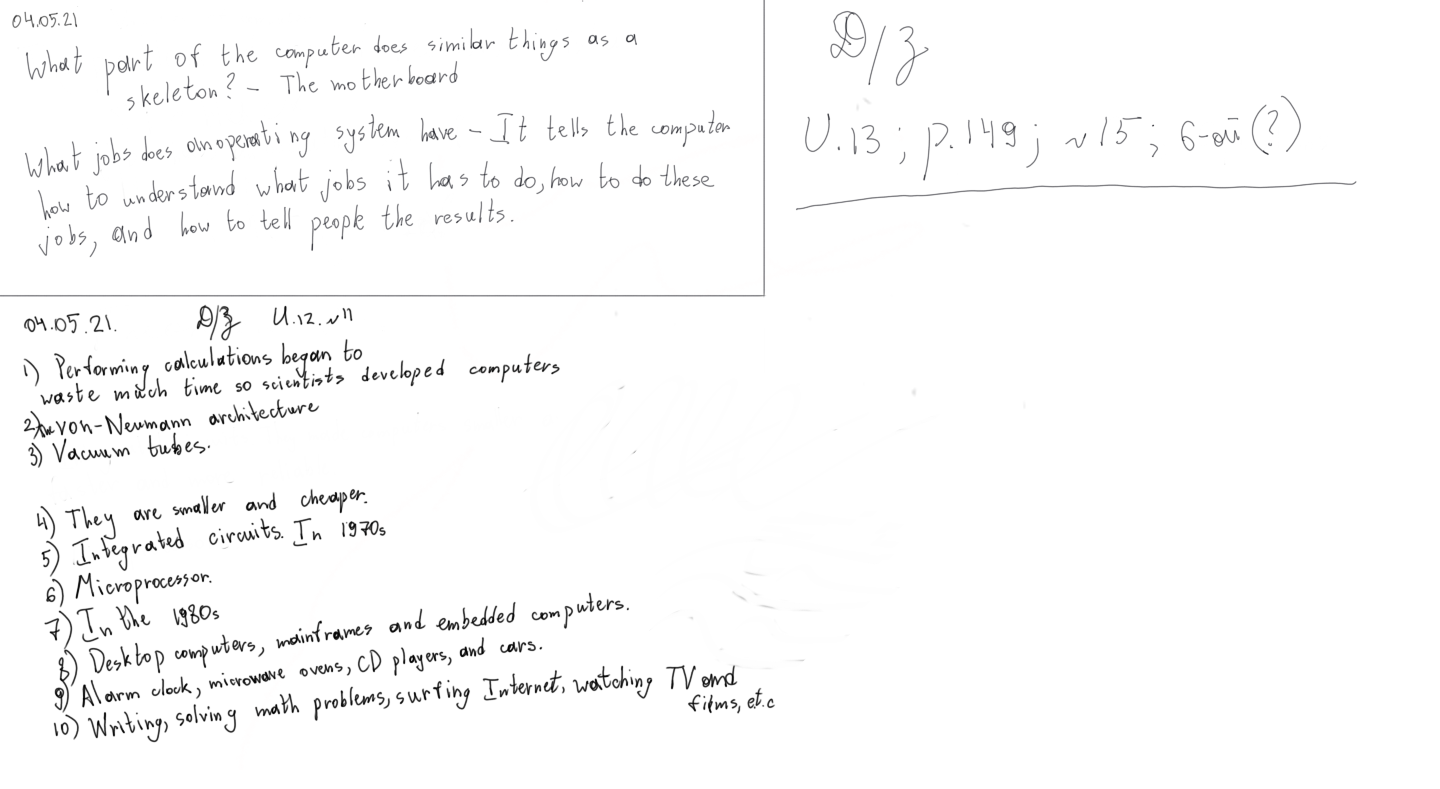 04.05.21
What part of the computer does similar things as a
skeleton? – The motherboard
What jobs does an operating system have – It tells the computer
how to understand what jobs it has to do, how to do these
jobs, and how to tell people the results.
Д/з
U.13; p.149; №15; 6-ой (?)
04.05.21. Д/з U.12. №11
1) Performing calculations began to
waste much time so scientists developed computers
2) von-Neumann architecture
3) Vacuum tubes.
4) They are smaller and cheaper.
5) Integrated circuits. In 1970s
6) Microprocessor.
7) In the 1980s
8) Desktop computers, mainframes and embedded computers.
9) Alarm clock, microwave ovens, CD players, and cars.
10) Writing, solving math problems, surfing Internet, watching TV and
films, et.c